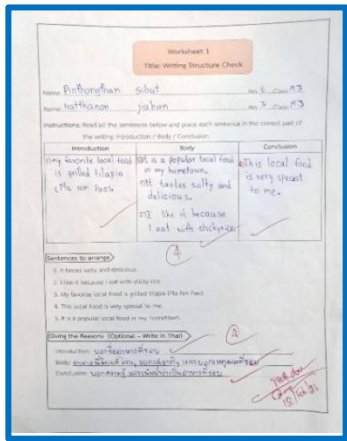 Worksheet 1
Title: Writing Structure Check
Name Pinthongthan Sobat No. 6 Class M3
Name Natthanon Jahan No. 3 Class M3
Instructions: Read all the sentences below and place each sentence in the correct part of
the writing Introduction / Body / Conclusion.
Introduction Body Conclusion
my favorite local food is grilled tilapia
It is a popular local food in my hometown.
It tastes salty and delicious.
I like it because I eat with sticky rice
This local food is very special to me.
4
Sentences to arrange
1. It tastes salty and delicious.
2. I like it because I eat with sticky rice.
3. My favorite local food is grilled tilapia (Pla Nin Pao).
4. This local food is very special to me.
5. It is a popular local food in my hometown.
Giving the Reasons (Optional – Write in Thai)
Introduction:
Body:
Conclusion: